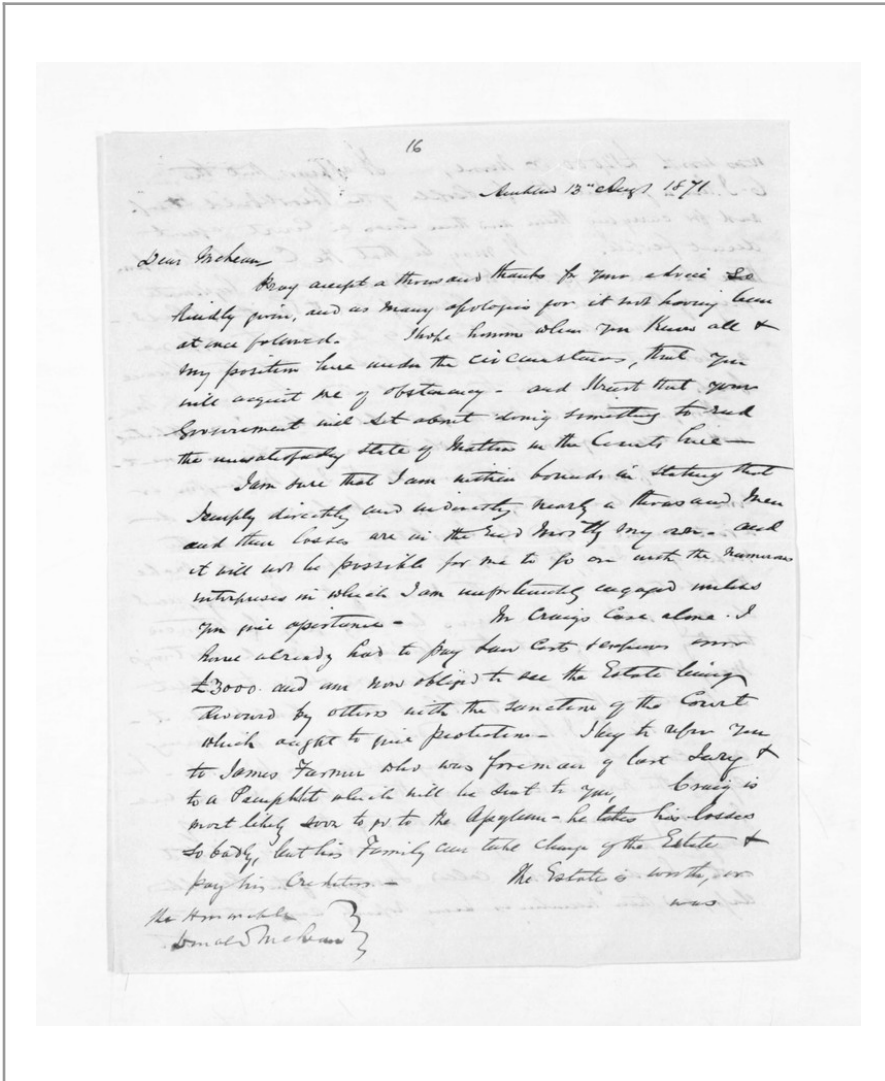 16
Auckland 13th Augt 1871
Dear McLean
Pray accept a thousand thanks for your advice so
kindly given, and as many apologies for it not having been
at once followed. I hope however when you know all &
my position here under the circumstances, that you
will acquit me of obstinacy - and I trust that your
Government will set about doing something to end
the unsatisfactory state of Matters in the Courts here -
I am sure that I am within bounds in stating that
I employ directly and indirectly nearly a thousand Men
and their losses are in the End Mostly my own - and
it will not be possible for me to go on with the numerous
enterprises in which I am unfortunately engaged unless
you give assistance - In Craigs Case alone I
have already had to pay Law Costs & expenses over
£3000 and am now obliged to see the Estate being
devoured by others with the sanction of the Court
which ought to give protection - I beg to refer you
to James Farmer who was foreman of last Jury &
to a Pamphlet which will be sent to you, Craig is
most likely soon to go to the Asylum - he takes his losses
so badly, but his Family can take charge of the Estate &
pay his Creditors - The Estate is worth, or
was
The Honorable
Donald McLean